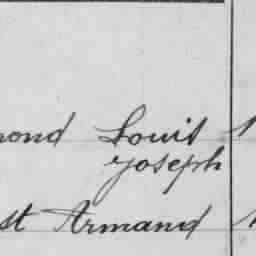 mond Louis
Joseph
st Armand